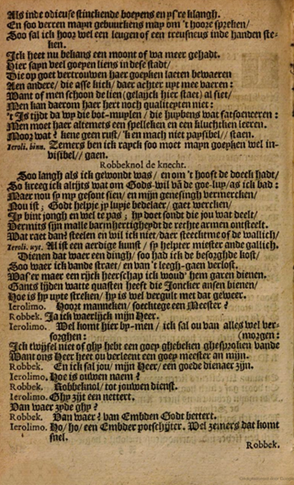 Als inde odieuse stinckende boeyens en ys're klangh.
En soo verren mayn gebuurkens may om 't hoore spreken/
Soo sal ick hoor wel een leugen of een treusneus inde handen ste-
ken.
Ick heet nu bekans een moont of wa meer gehadt.
Hier sayn veel goeyen liens in dese stadt/
Die op goet vertrouwen haer goeyken laeten bewaeren
Aen andere/ die asse kick/ daer achter uyt mee vaeren:
Want of men schoon de lien (gelayck hier staet) al siet/
Men kan daerom haer hert noch qualiteyten niet:
't Is tijdt da wy die bot-muylen/ die huybens wat fatsoeneeren:
Men moet haer altemets een spelleken en een kluchtken leeren.
Maer wat? kene geen rust/ ken mach niet paysibel/ staen.
Ieroli. binn. Zemers ben ick rayck soo moet mayn goeyken wel in-
visibel// gaen.
Robbeknol de knecht.
Soo langh als ick gewondt was/ en om 't hooft de doeck hadt/
So kreeg ick altijts wat om Gods-wil van de goe-luy/ as ick bad:
Maer nou is my gesont sien/ en mijn genesingh vermercken/
Nou ist; Godt helpje jy luyje bedelaer/ gaet wercken/
Jy bint jongh en wel te pas; hy doet sonde die jou wat deelt/
Dermits sijn malle barmhertigheydt de rechte armen ontsteelt.
Wat raet dan? steelen en wil ick niet/ daer steeckt me of de wallich/
Ieroli. uyt. Al ist een aerdige kunst/ sy helpter mi'ester ande gallich.
Dienen dat waer een dingh/ soo had ick de besorghde kost/
Soo waer ick vande straet/ en van 't leegh-gaen verlost.
Was'er maer een rijck heerschap ick woud' hem gaen dienen.
Gants lyden watte quasten heeft die Joncker ansen bienen/
Hoe is hy uyte strecken/ hy is wel bergult met dat geweer.
Ierolimo. Hoort manneken/ soecktege een Meester?
Robbek. Ja ick waerlijck mijn Heer.
Ierolimo. Wel komt hier by-men/ ick sal ou van alles wel ver-
sorghen: (morgen:
Ick twijfel niet of ghy hebt een goey ghebeken ghesproken vande
Want ons Heer heet ou verleent een goey meester an mijn.
Robbek. En ick sal jou/ mijn Heer/ een goede dienaer zijn.
Ierolimo. Hoe is ouwen naem?
Robbek. Robbeknol/ tot jouwen dienst.
Ierolimo. Ghy zijt een nettert.
Van waer zyde ghy?
Robbek. Van waer? van Embden Godt bettert.
Ierolimo. Ho/ ho/ een Embder potschijter. Wel zemers dat komt
snel.
Robbek.